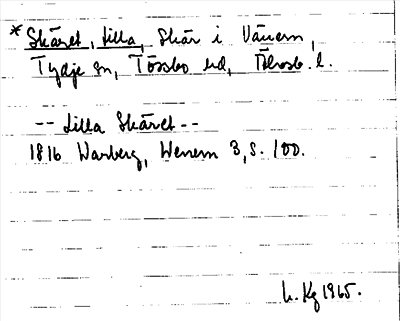 * Skäret, Lilla, Skär i Vänern,
Tydje sn, Tössbo hd, Älvsb. l.
-- Lilla Skäret --
1816 Warberg, Wenern 3, s. 100.
Kg 1965.